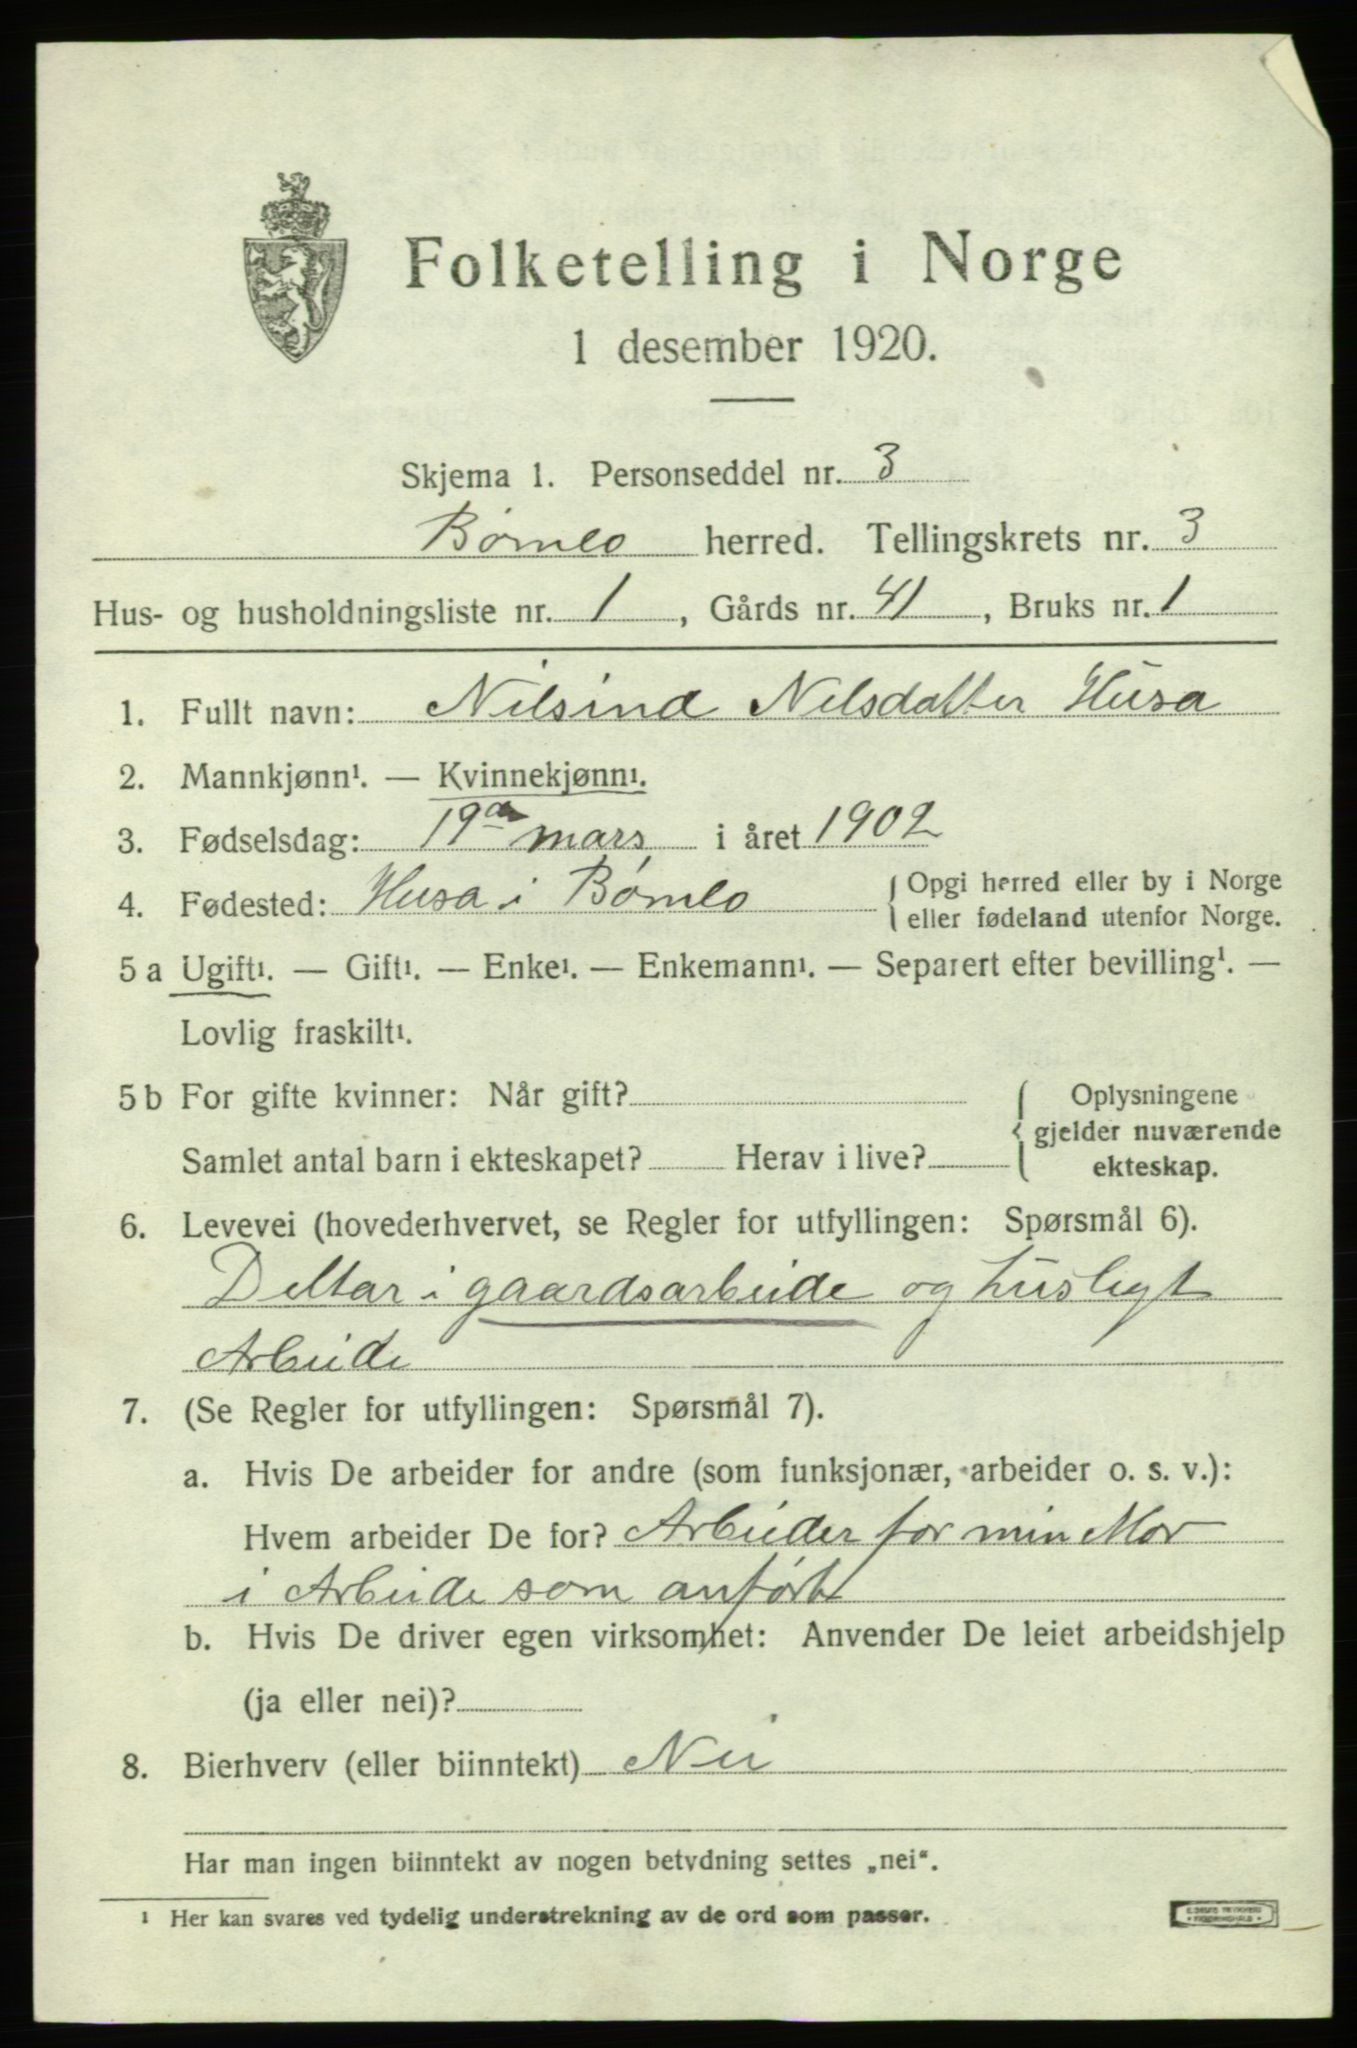 Folketelling i Norge
1 desember 1920.
Skjema 1. Personseddel nr. 3
Bømlo herred. Tellingskrets nr. 3
Hus- og husholdningsliste nr. 1, Gårds nr. 41, Bruks nr. 1
1. Fullt navn: Nilsina Nilsdatter Husa
2. Mannkjønn¹. — Kvinnekjønn¹.
3. Fødselsdag: 19de mars i året 1902
4. Fødested: Husa i Bømlo { Opgi herred eller by i Norge
eller fødeland utenfor Norge.
5 a Ugift¹. — Gift¹. — Enke¹. — Enkemann¹. — Separert efter bevilling¹. —
Lovlig fraskilt¹.
5 b For gifte kvinner: Når gift? { Oplysningene
gjelder nuværende
Samlet antal barn i ekteskapet? Herav i live? ekteskap.
6. Levevei (hovederhvervet, se Regler for utfyllingen: Spørsmål 6).
Deltar i gaardsarbeide og husligt
Arbeide
7. (Se Regler for utfyllingen: Spørsmål 7).
a. Hvis De arbeider for andre (som funksjonær, arbeider o. s. v.):
Hvem arbeider De for? Arbeider for min Mor
i Arbeide som anført
b. Hvis De driver egen virksomhet: Anvender De leiet arbeidshjelp
(ja eller nei)?
8. Bierhverv (eller biinntekt) Nei
Har man ingen biinntekt av nogen betydning settes „nei“.
¹ Her kan svares ved tydelig understrekning av de ord som passer.